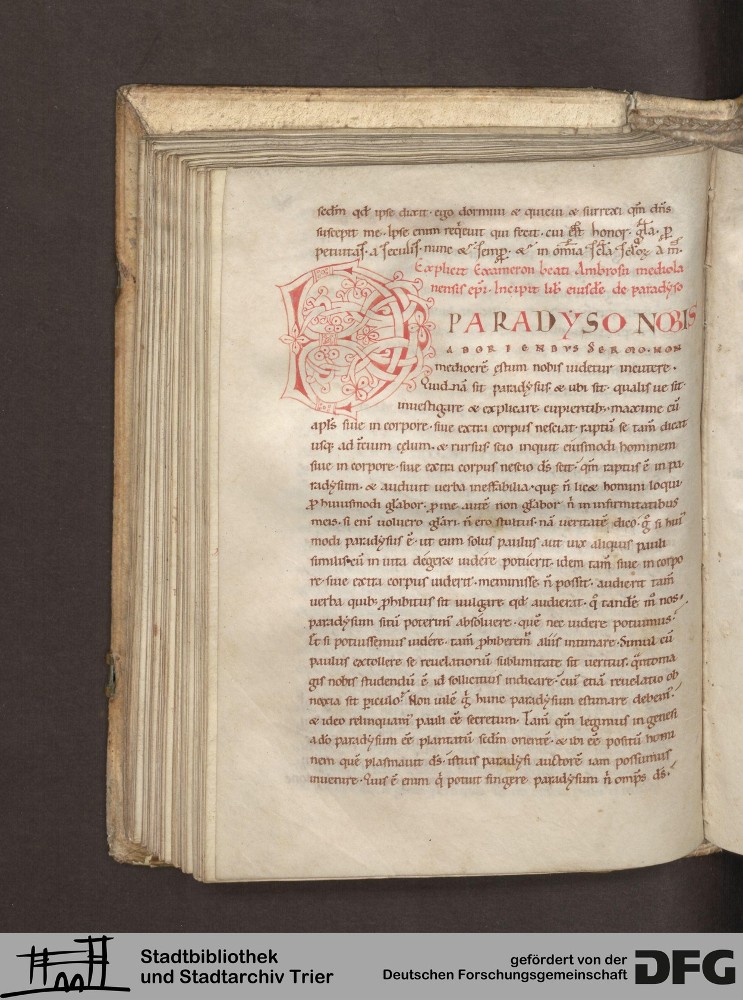 sedm̄ qd̄ ipse dixit· ego dormiui & quieui & surrexi qm̄ dn̄s
suscepit me· Ipse enim req̇euit qui fecit· cui est honor· gl̄a· ꝑ
petuitas· a seculis· nunc & semꝑ· & in om̄ia scl̄a scl̄oꝝ am̄·
Explicit Exameron beati Ambrosii mediola
nensis ep̄i· Incipit lib̄ eiusdē de paradyso
PARADYSO NOBIS
ADORIENDVS SERMO· NON
mediocrē estum nobis uidetur incutere·
Quid.nā sit paradysus & ubi sit· qualis ue sit·
inuestigare & explicare cupientib;· maxime cū
apl̄s siue in corpore· siue extra corpus nesciat· raptū se tam̄ dicat
usq; ad t̄cium celum· & rursus scio inquit eiusmodi hominem
siue in corpore· siue extra corpus nescio ds̄ scit· qm̄ raptus ē in pa
radysum· & audiuit uerba ineffabilia· quę n̄ lic& homini loqui·
ꝓ huiusmodi gl̄abor· ꝓ me autē non gl̄abor n̄ in infirmitatibus
meis· si eni uoluero gl̄ari n̄ ero stultus· nā ueritatē dico·
modi paradysus ē· ut eum solus paulus aut uix aliquis pauli
similis cū in uita deger& uidere potuerit· idem tam̄ siue in corpo
re· siue extra corpus uiderit· meminisse n̄ possit· audierit tam̄
uerba quib; ꝓhibitus sit uulgare qd̄ audierat· tandē nos·
paradysum sitū poterim' absoluere· quē nec uidere potuimus·
Et si potuissemus uidere· tam̄ ꝓhiberem' aliis intimare· Simul cū
paulus extollere se reuelationū sublimitate sit ueritus· q̄ntoma
gis nobis studendū ē id sollicitius indicare· cui' etiā reuelatio ob
noxia sit piculo· Non uilē g̊ hunc paradysum estimare debem'·
& ideo relinquam' pauli eē secretum· Tam̄ qm̄ legimus in genesi
a do paradysum eē plantatū sedm̄ orientē· & ibi eē positū homi
nem quē plasmauit ds̄· istius paradysi auctorē iam possumus
inuenire· Quis ē enim q̇ potuit fingere paradysum n̄ omp̄s ds̄·
Stadtbibliothek
und Stadtarchiv Trier
gefördert von der
Deutschen Forschungsgemeinschaft
DFG